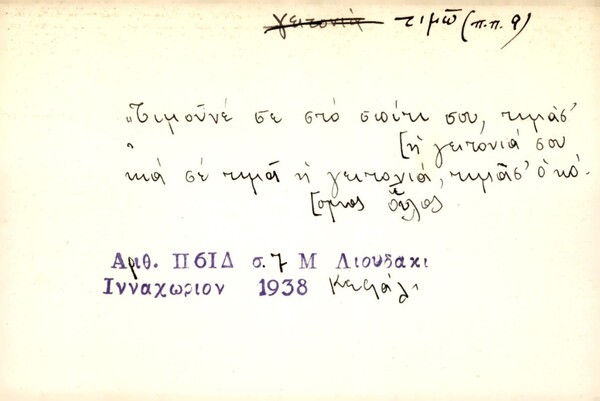 γειτονιά τιμῶ (π.π. 9)
"Τιμοῦνέ σε στό σπίτι σου, τιμᾶσ'
[ἡ γειτονιά σου
κιά σέ τιμᾶ ἡ γειτονιά, τιμᾶσ' ὁ κό-
[σμος ὅλος.
Αριθ. Π6ΙΔ σ. 7 Μ Λιουδακι
Ινναχωριον 1938 Κεφάλι